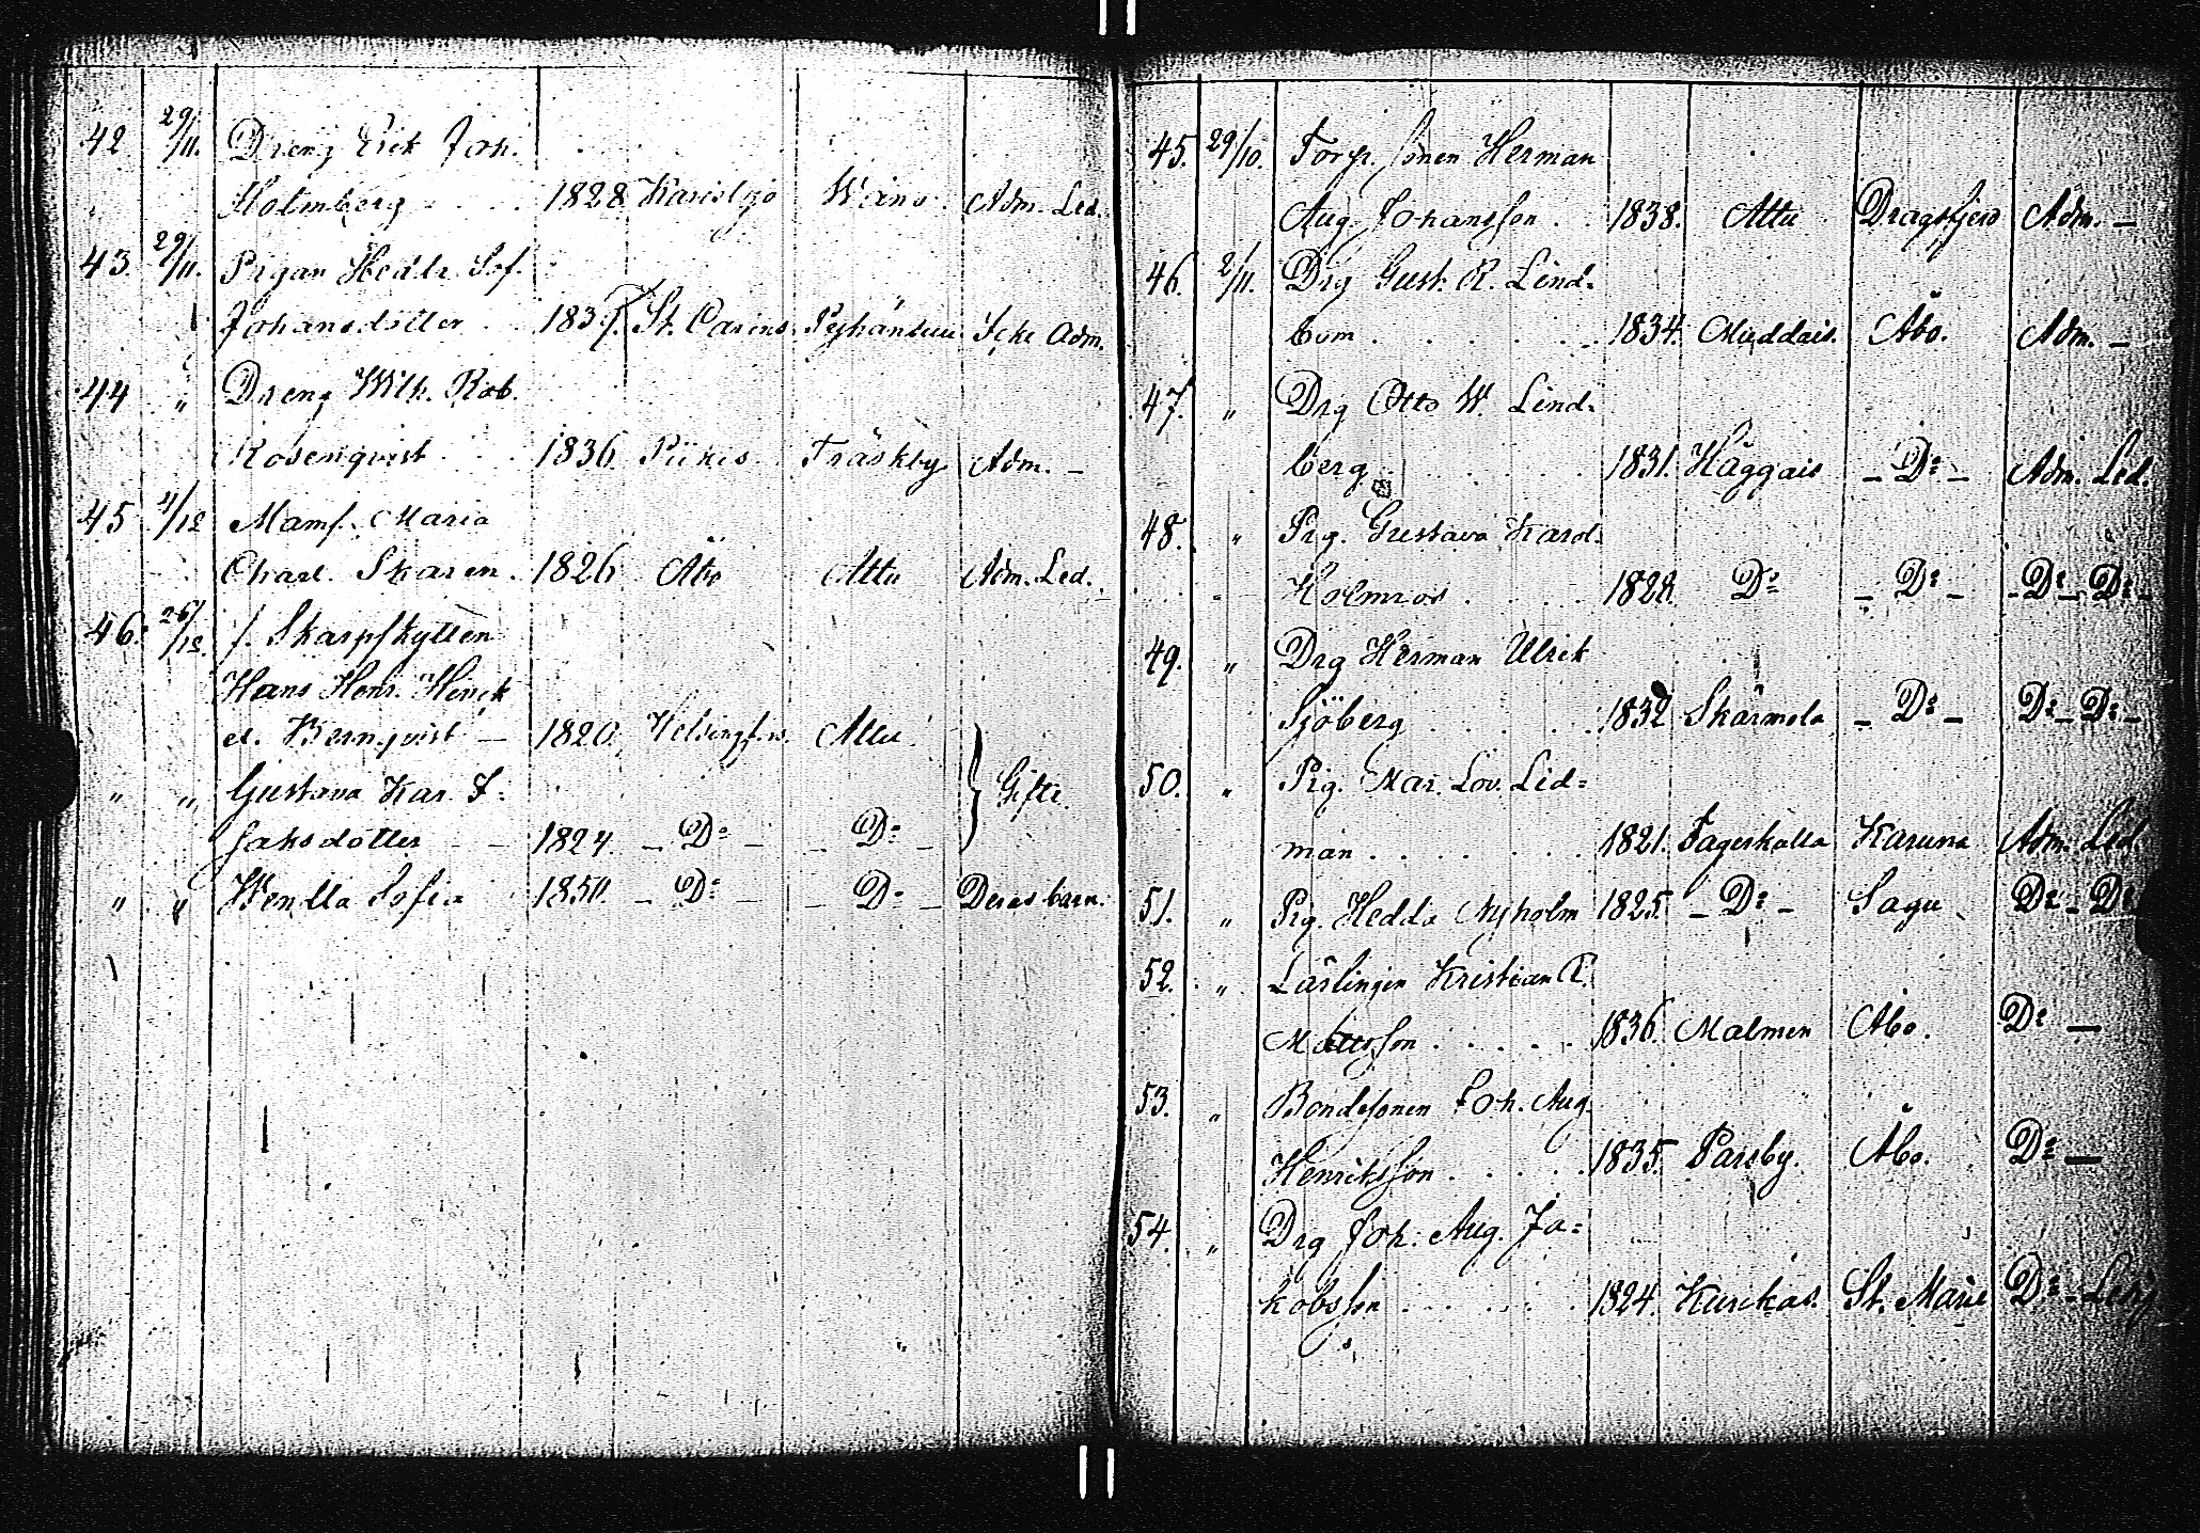 42 29/11. Dreng Erik Joh.
Holmberg 1828 Karislojo Wäno Adm. Led.
43. 29/11. Pigan Hedda Sof.
Johansdotter 1837. St. Carins Pyhänsuu Icke Adm.
44 " Dreng Wilh. Rob.
Rosenqvist 1836. Piikis Träskby Adm. –
45 4/12 Mams. Maria
Charl. Skaren. 1826 Åbo Attu Adm. Led.
46. 26/12. f. Skarpskytten
Hans Henr. Henrik
et. Bernqvist – 1820. Helsingfors. Attu
" " Gustava Kar. I. } Gifte.
Jaksdotter – – 1824. – Do – – Do –
" " Wendla Sofia 1850. – Do – – Do – Deras barn.
45. 29/10. Torp. sonen Herman
Aug. Johansson . . 1838. Attu Dragsfjerd Adm. –
46. 2/11. Drg Gust. R. Lind=
bom . . . . . . 1834. Muddais. Åbo. Adm. –
47. " Drg Otto W. Lind=
berg . . . . . 1831. Häggais – Do – Adm. Led.
48. " Pig. Gustava Karol.
Holmros . . . . 1828. Do – Do – – Do – Do –
49. " Drg Herman Ulrik
Sjöberg . . . . . 1832 Skärmola – Do – Do – Do –
50. " Pig. Mar. Lov. Lid=
man . . . . . . 1821. Fagerkulla Karuna Adm. Led.
51. " Pig. Hedda Nyholm 1825. – Do – Sagu Do – Do
52. " Lärlingen Kristian R.
Mattsson . . . . . 1836. Malmen Åbo. Do –
53. " Bondesonen Joh. Aug.
Henriksson . . . . . 1835. Parsby. Åbo. Do –
54. " Drg Joh. Aug. Ja=
kobsson . . . . . . 1824. Kurckas. St. Marie Do – Ledig